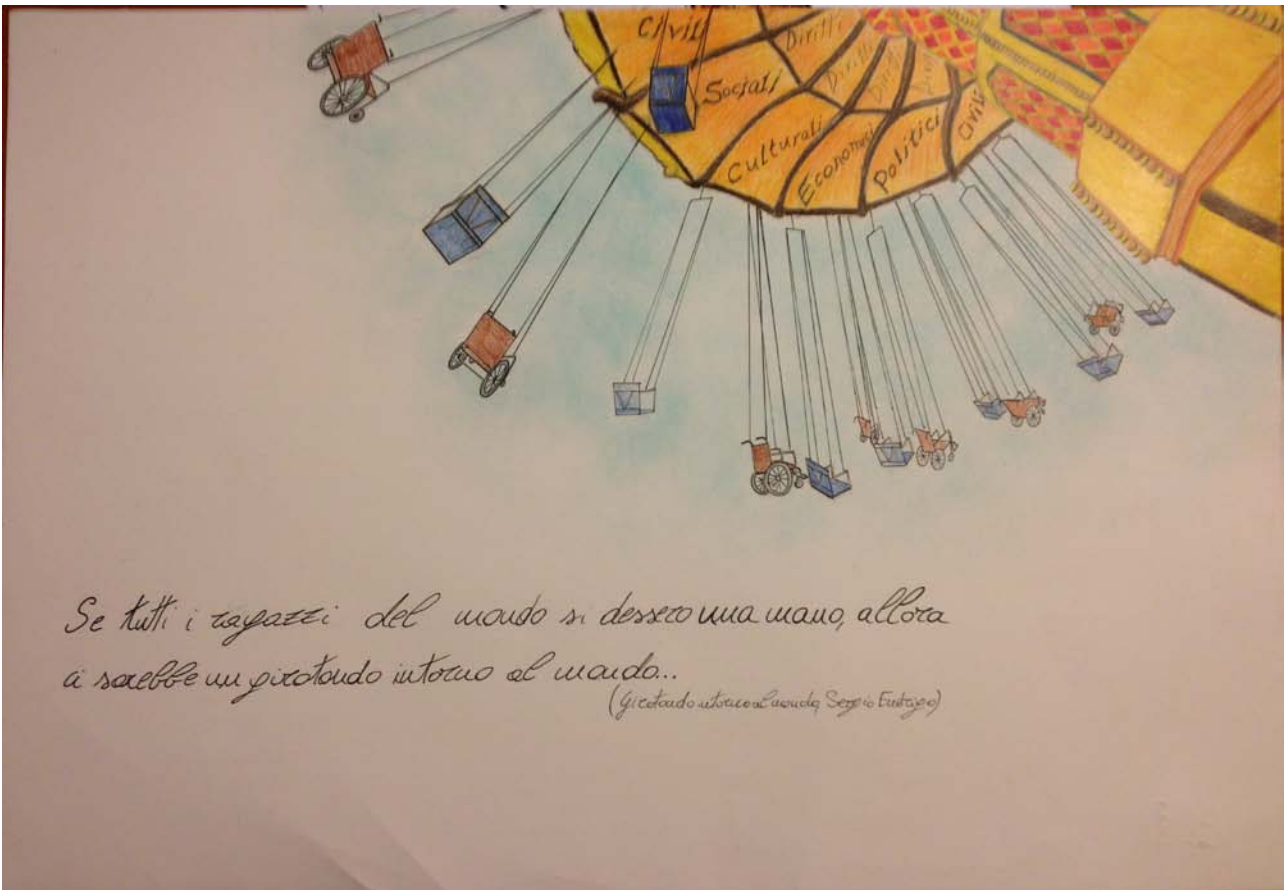 Civili
Diritti
Diritti
Diritti
Sociali
Culturali
Economici
Politici
Civili
Se tutti i ragazzi del mondo si dessero una mano, allora
ci sarebbe un girotondo intorno al mondo...
(Girotondo intorno al mondo, Sergio Endrigo)